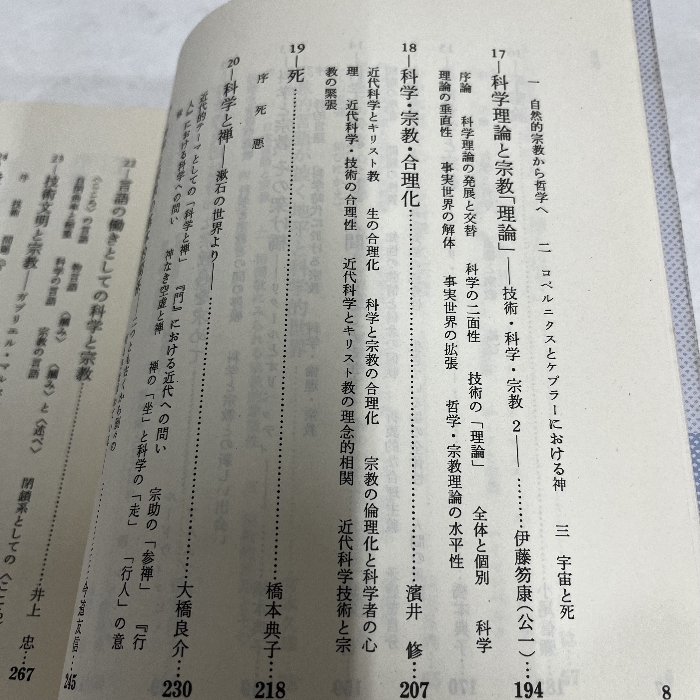 一 自然的宗教から哲学へ 二 コペルニクスとケプラーにおける神 三 宇宙と死
17―科学理論と宗教「理論」――技術・科学・宗教 2――……伊藤笏康(公一)…194
序論 科学理論の発展と交替 科学の二面性 技術の「理論」 全体と個別 科学
理論の垂直性 事実世界の解体 事実世界の拡張 哲学・宗教理論の水平性
18―科学・宗教・合理化……濱井 修…207
近代科学とキリスト教 生の合理化 科学と宗教の合理化 宗教の倫理化と科学者の心
理 近代科学・技術の合理性 近代科学とキリスト教の理念的相関 近代科学技術と宗
教の緊張
19―死……橋本典子…218
序 死 悪
20―科学と禅――漱石の世界より――……大橋良介…230
近代的テーマとしての「科学と禅」 『門』における近代への問い 宗助の「参禅」 『行
人』における科学への問い 神なき空虚と禅 禅の「坐」と科学の「走」 「行人」の意
245
22―言語の働きとしての科学と宗教
の言語 科学の言語 宗教の言語 閉鎖系としての
井上 忠…267
23―技術文明と宗教――ガブリエル・マル
序 技術
8